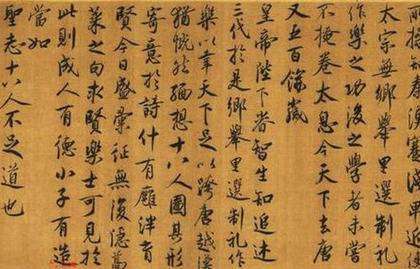 太宗無鄉舉里選制禮
作樂之功後之學者未嘗
不掩卷太息今天下去唐
又五百餘歲
皇帝陛下睿智生知追述
三代於是鄉舉里選制禮作
樂以幸天下足以跨唐越漢
猶慨然緬想十八人圖其形
寄意於詩什有廱泮育
賢今日盛彙征無復隱蒿
萊之句求賢樂士可見於
此則成人有德小子有造
當如
聖志十八人不足道也